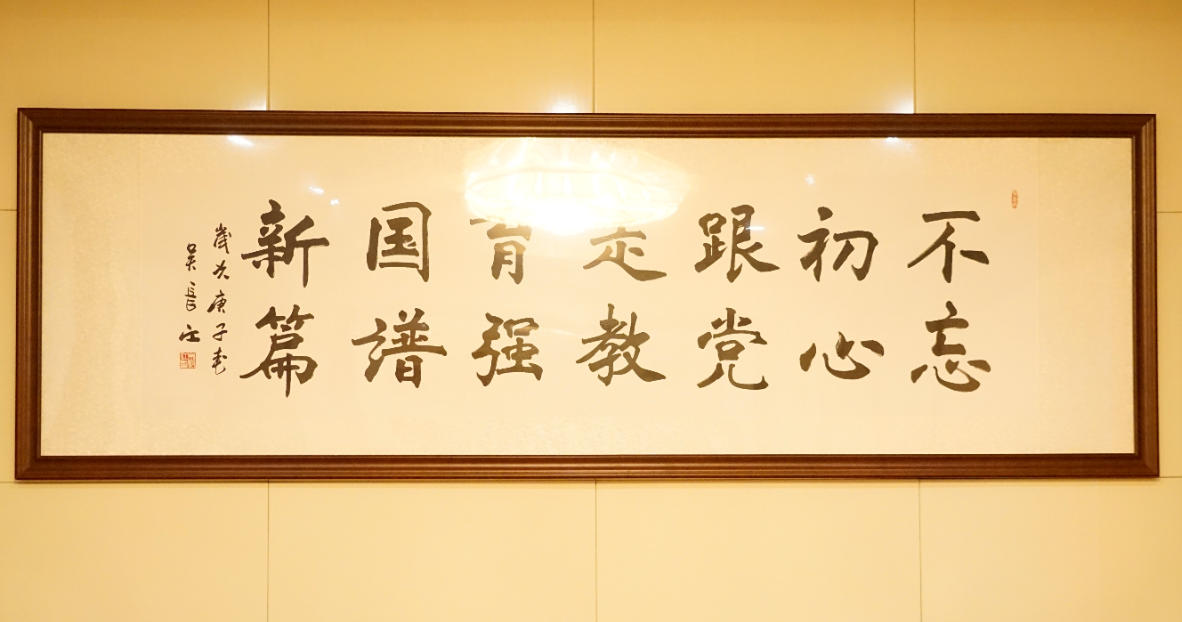 不忘
初心
跟党
走教
育强
国谱
新篇
歲次庚子春
吴長